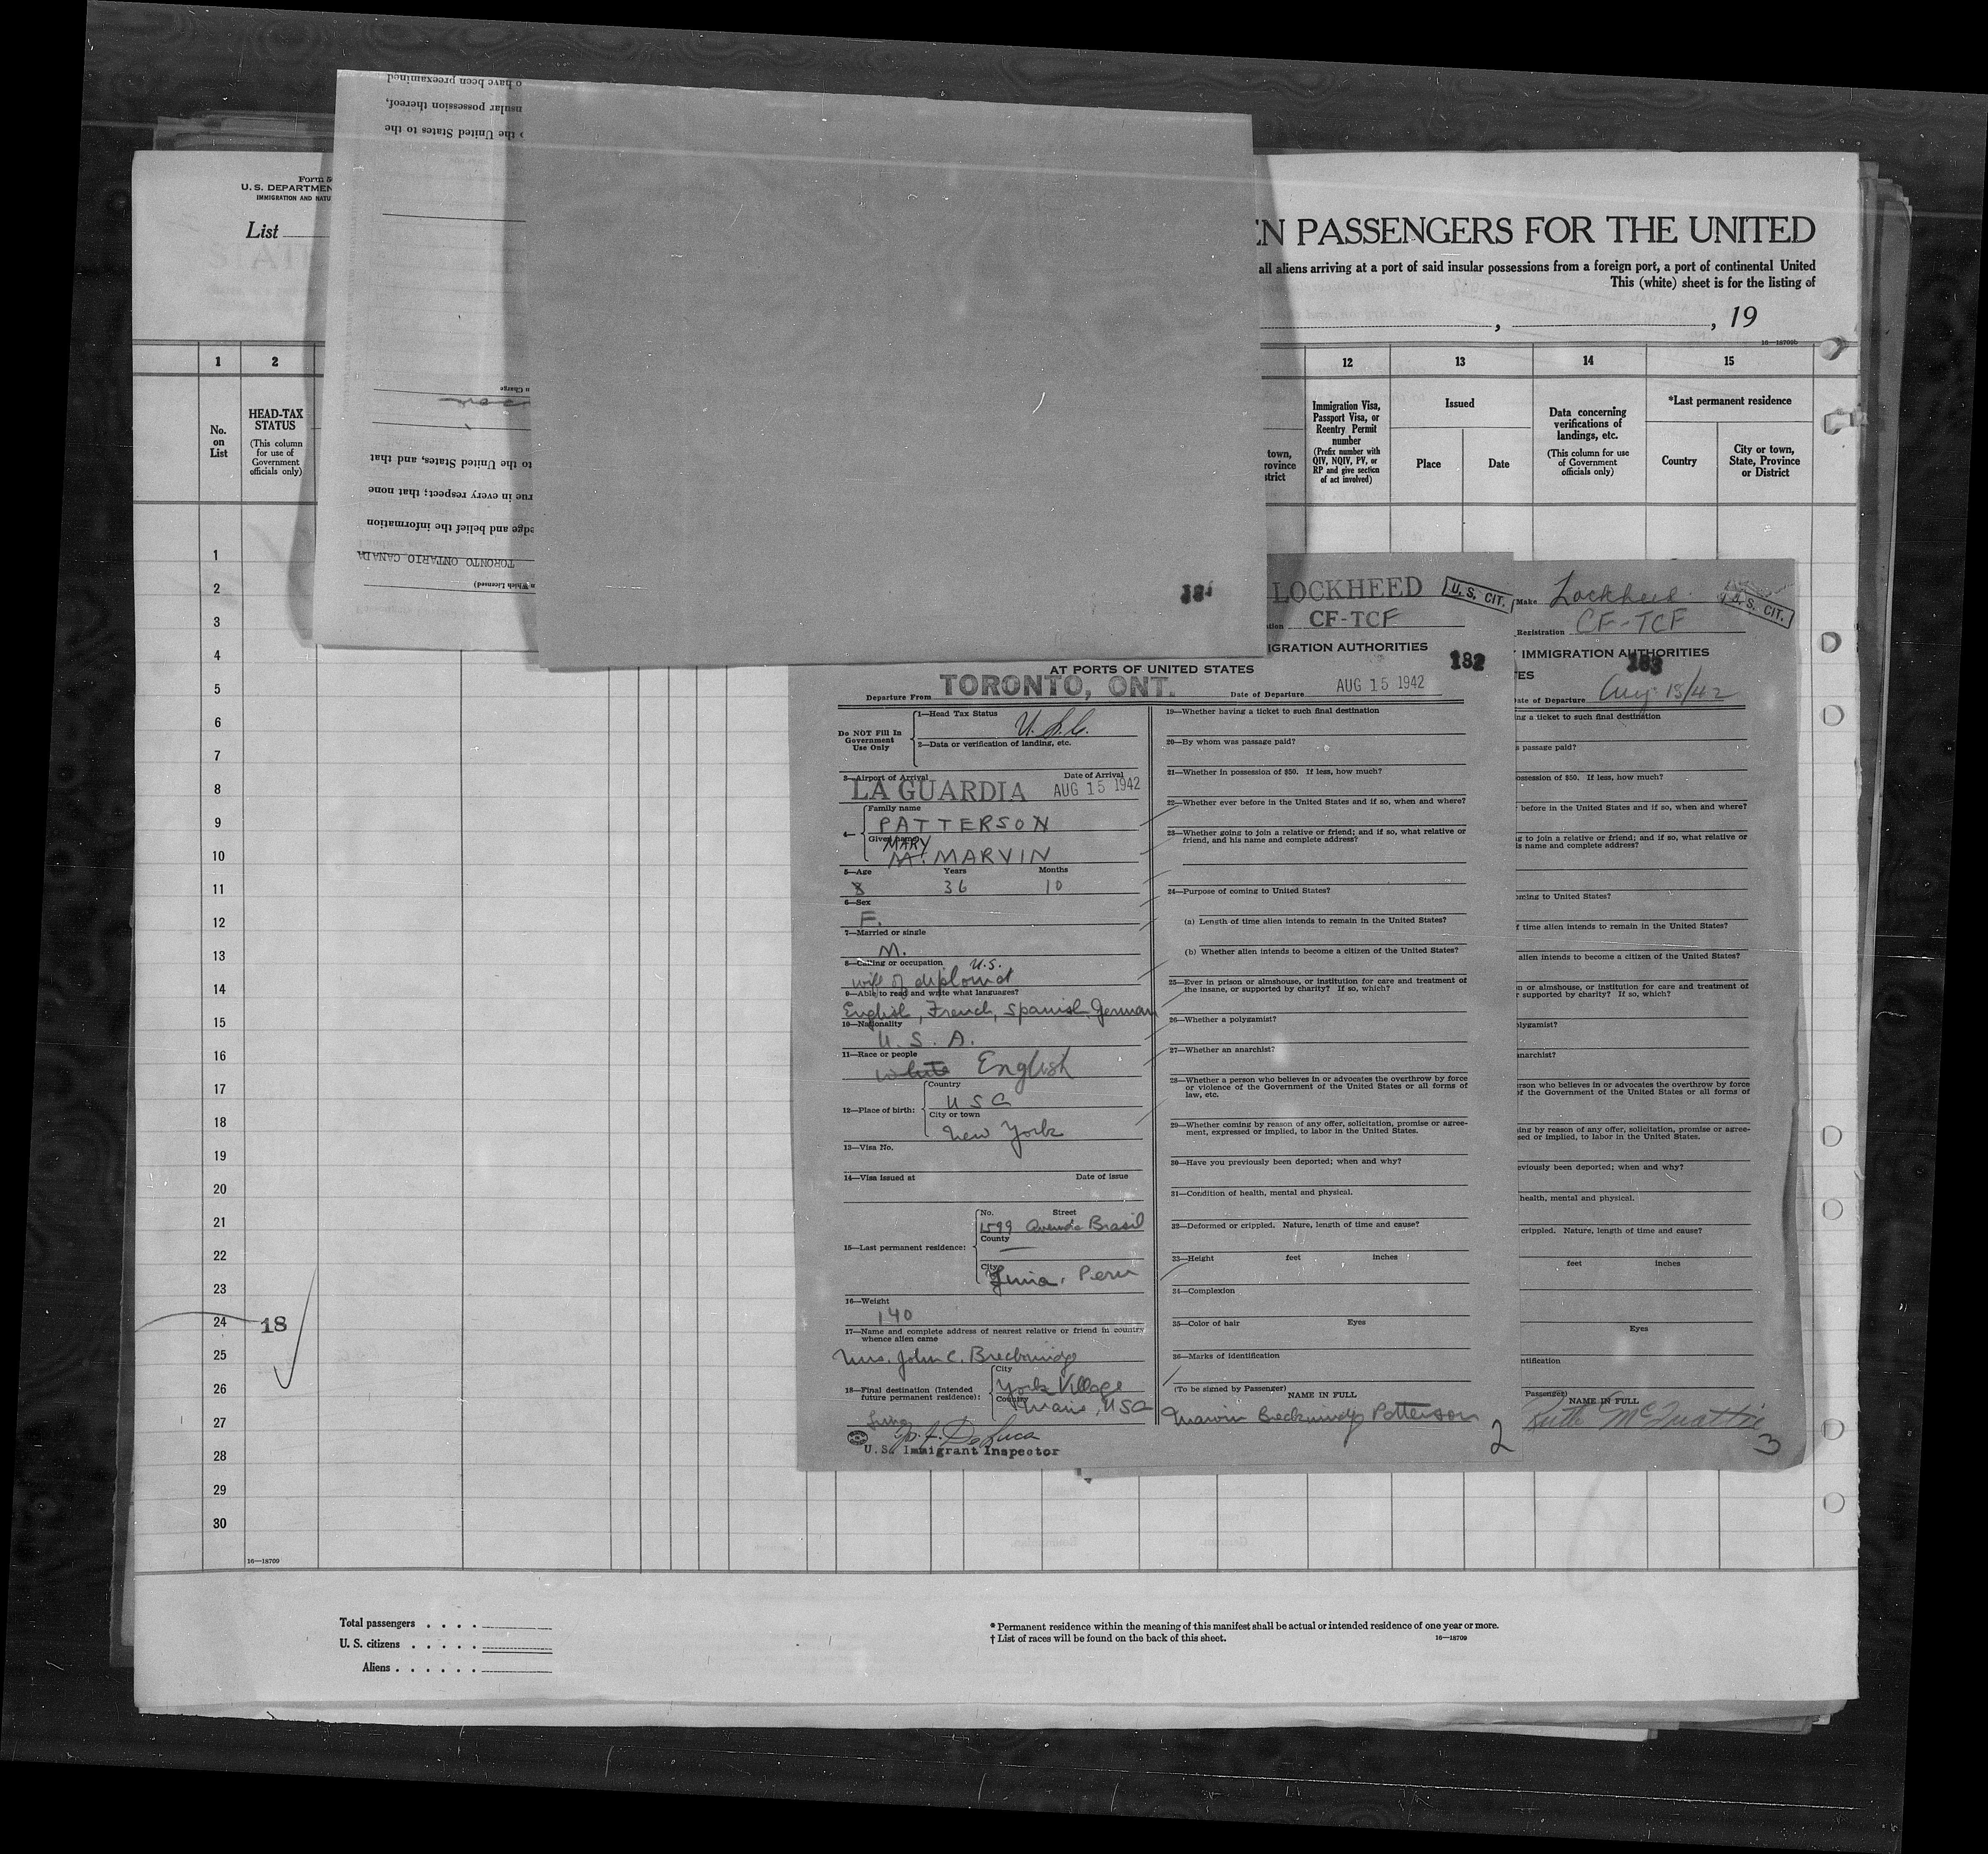 Form 5
U. S. DEPARTMEN
IMMIGRATION AND NATU
List
EN PASSENGERS FOR THE UNITED
all aliens arriving at a port of said insular possessions from a foreign port, a port of continental United
This (white) sheet is for the listing of
, , 19
16—18709b
1 2 12 13 14 15
No. on List
HEAD-TAX STATUS
(This column for use of Government officials only)
town,
rovince
strict
Immigration Visa, Passport Visa, or Reentry Permit number
(Prefix number with QIV, NQIV, PV, or RP and give section of act involved)
Issued
Place Date
Data concerning verifications of landings, etc.
(This column for use of Government officials only)
*Last permanent residence
Country
City or town, State, Province or District
o have been preexamined
nsular possession thereof,
o the United States to the
n Charge
to the United States, and that
rue in every respect; that none
edge and belief the information
TORONTO ONTARIO CANADA
n Which Licensed)
181
1
2
3
4
5
6
7
8
9
10
11
12
13
14
15
16
17
18
19
20
21
22
23
24 18
25
26
27
28
29
30
16—18709
LOCKHEED U. S. CIT.
tion CF-TCF
IGRATION AUTHORITIES 182
AT PORTS OF UNITED STATES
Departure From TORONTO, ONT. Date of Departure AUG 15 1942
Do NOT Fill In Government Use Only
1—Head Tax Status U.S.C.
2—Data or verification of landing, etc.
3—Airport of Arrival Date of Arrival
LA GUARDIA AUG 15 1942
4— Family name
PATTERSON
Given name
MARY
M. MARVIN
5—Age Years Months
36 10
6—Sex
F.
7—Married or single
M.
8—Calling or occupation U.S.
wife of diplomat
9—Able to read and write what languages?
English, French, Spanish, German
10—Nationality
U. S. A.
11—Race or people
white English
12—Place of birth: Country
USA
City or town
New York
13—Visa No.
14—Visa issued at Date of issue
15—Last permanent residence: No. Street
1599 Avenida Brasil
County
City
Lima, Peru
16—Weight
140
17—Name and complete address of nearest relative or friend in country whence alien came
Mrs. John C. Breckinridge
18—Final destination (Intended future permanent residence): City
York Village
Country
Maine, USA
U.S. Immigrant Inspector
19—Whether having a ticket to such final destination
20—By whom was passage paid?
21—Whether in possession of $50. If less, how much?
22—Whether ever before in the United States and if so, when and where?
23—Whether going to join a relative or friend; and if so, what relative or
friend, and his name and complete address?
24—Purpose of coming to United States?
(a) Length of time alien intends to remain in the United States?
(b) Whether alien intends to become a citizen of the United States?
25—Ever in prison or almshouse, or institution for care and treatment of
the insane, or supported by charity? If so, which?
26—Whether a polygamist?
27—Whether an anarchist?
28—Whether a person who believes in or advocates the overthrow by force
or violence of the Government of the United States or all forms of
law, etc.
29—Whether coming by reason of any offer, solicitation, promise or agree-
ment, expressed or implied, to labor in the United States.
30—Have you previously been deported; when and why?
31—Condition of health, mental and physical.
32—Deformed or crippled. Nature, length of time and cause?
33—Height feet inches
34—Complexion
35—Color of hair Eyes
36—Marks of identification
(To be signed by Passenger) NAME IN FULL
Marvin Breckinridge Patterson
2
Make Lockheed U. S. CIT.
Registration CF-TCF
IMMIGRATION AUTHORITIES
183
TES
Date of Departure Aug 15/42
ng a ticket to such final destination
s passage paid?
ossession of $50. If less, how much?
before in the United States and if so, when and where?
g to join a relative or friend; and if so, what relative or
is name and complete address?
oming to United States?
f time alien intends to remain in the United States?
alien intends to become a citizen of the United States?
n or almshouse, or institution for care and treatment of
r supported by charity? If so, which?
lygamist?
anarchist?
rson who believes in or advocates the overthrow by force
of the Government of the United States or all forms of
ing by reason of any offer, solicitation, promise or agree-
sed or implied, to labor in the United States.
eviously been deported; when and why?
health, mental and physical.
crippled. Nature, length of time and cause?
feet inches
Eyes
ntification
Passenger) NAME IN FULL
Ruth
3
Total passengers . . . .
U. S. citizens . . . . .
Aliens . . . . . .
* Permanent residence within the meaning of this manifest shall be actual or intended residence of one year or more.
† List of races will be found on the back of this sheet. 16—18709